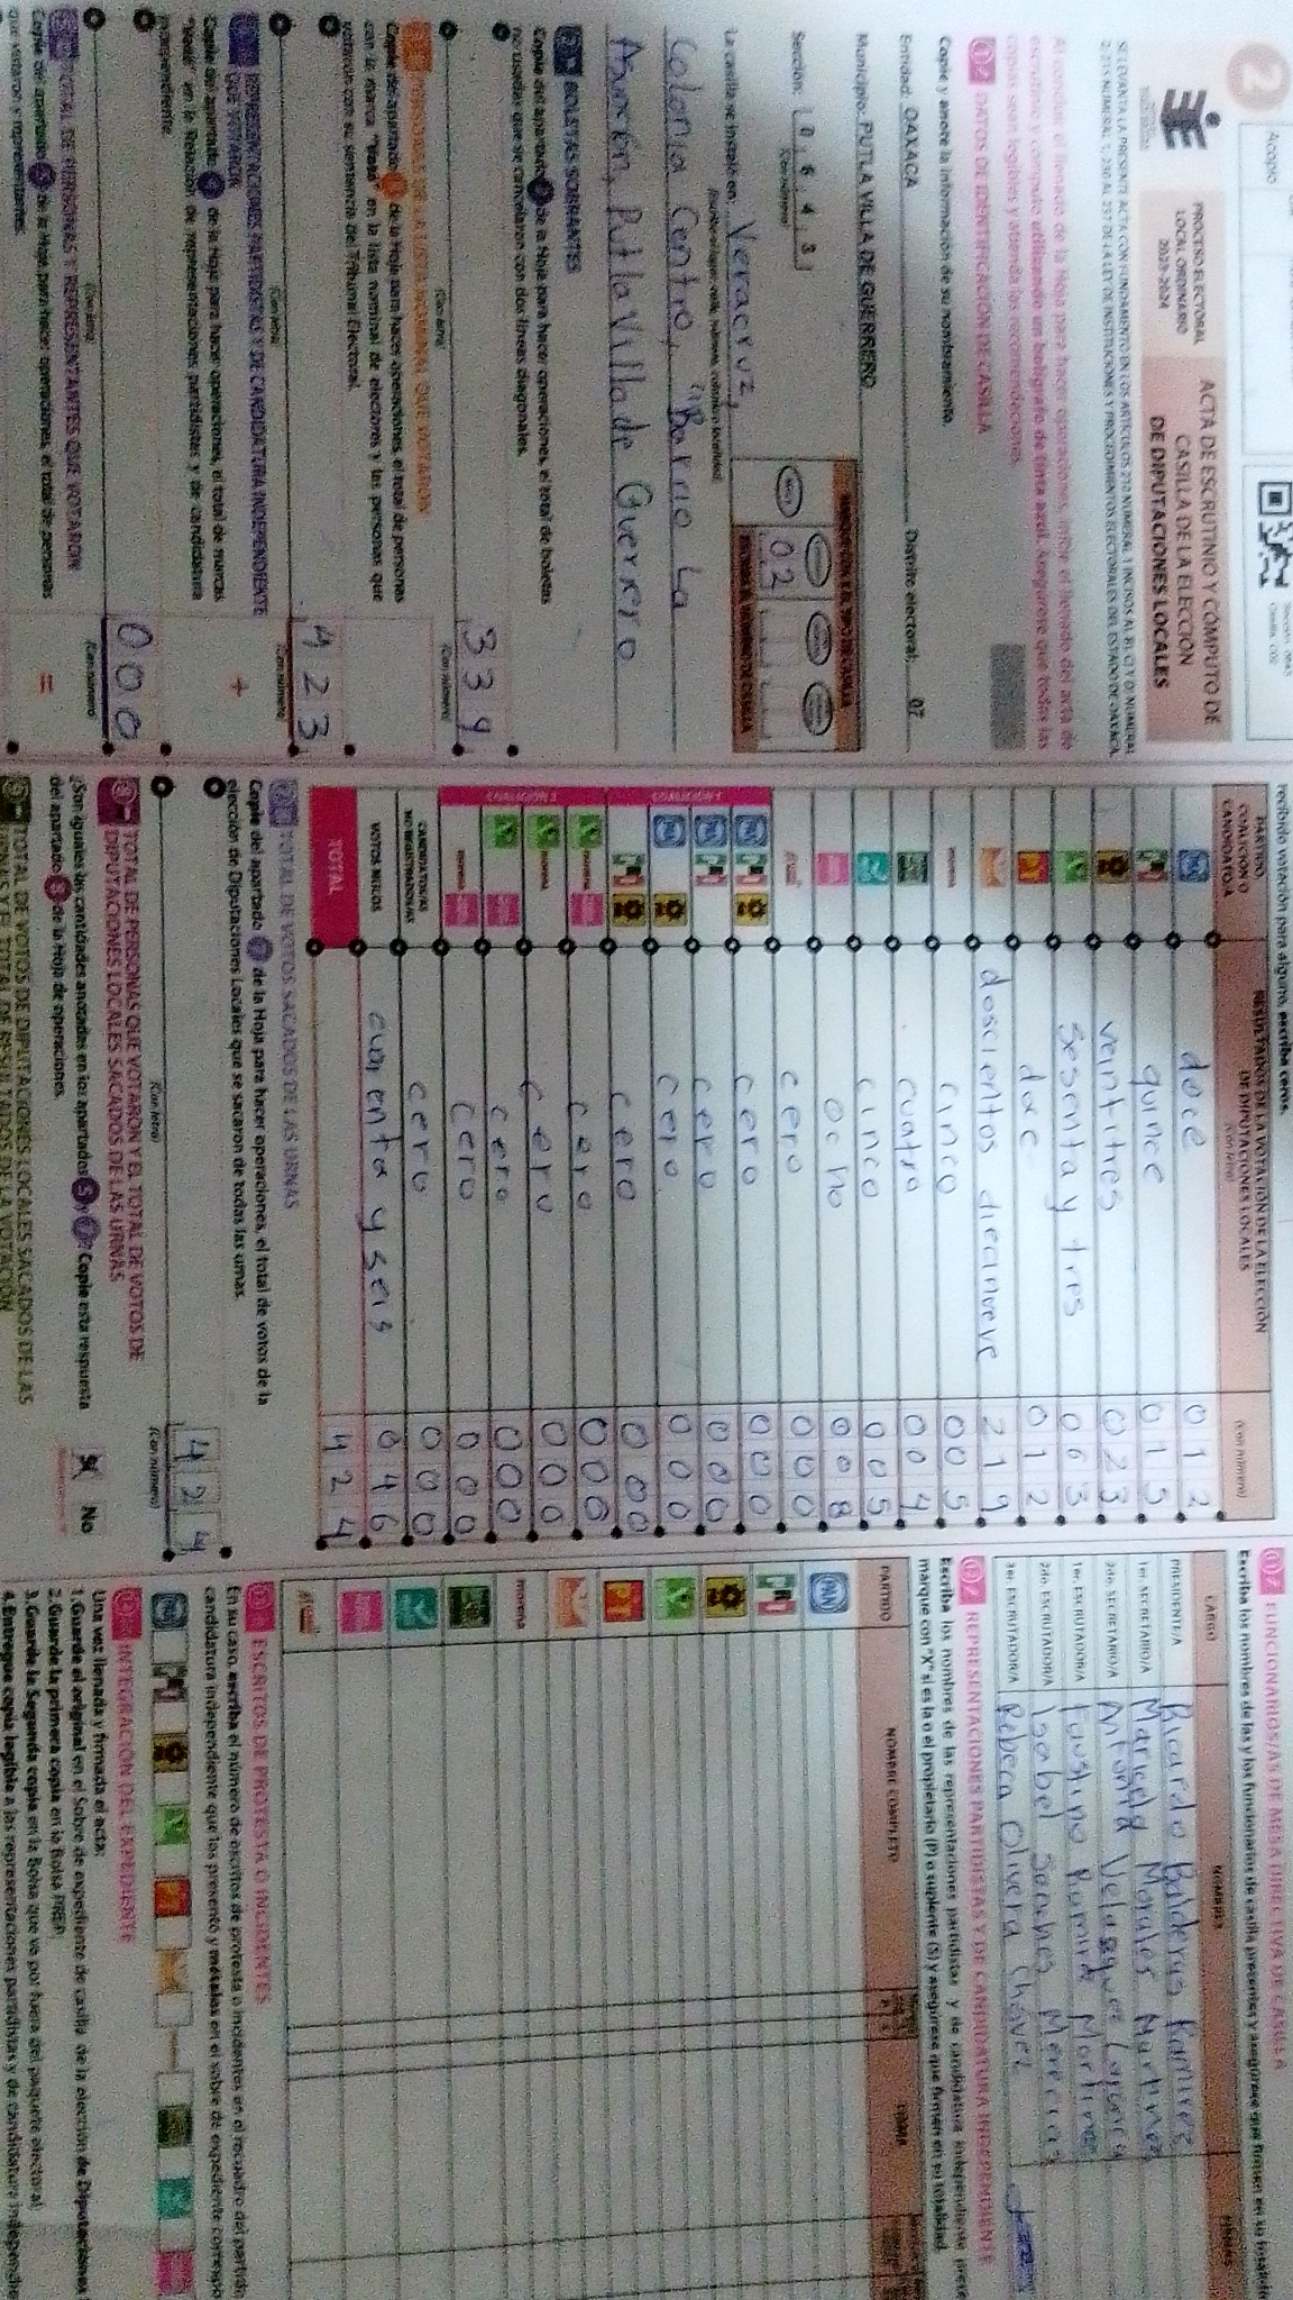 2
Acopio
PROCESO ELECTORAL
LOCAL ORDINARIO
2023-2024
ACTA DE ESCRUTINIO Y CÓMPUTO DE
CASILLA DE LA ELECCIÓN
DE DIPUTACIONES LOCALES
Al concluir el llenado de la Hoja para hacer operaciones, inicie el llenado del acta de
escrutinio y cómputo utilizando un bolígrafo de tinta azul. Asegúrese que todas las
copias sean legibles y atienda las recomendaciones.
1 DATOS DE IDENTIFICACIÓN DE CASILLA
Copie y anote la información de su nombramiento.
Entidad: OAXACA Distrito electoral: 07
Municipio: PUTLA VILLA DE GUERRERO
Sección: 0 6 4 3
(Con número)
02
La casilla se instaló en: Veracruz,
Colonia Centro, "Barrio La
Asunción, Putla Villa de Guerrero
BOLETAS SOBRANTES
Copie del apartado de la Hoja para hacer operaciones, el total de boletas
no usadas que se cancelaron con dos líneas diagonales.
(Con letra)
334
(Con número)
PERSONAS DE LA LISTA NOMINAL QUE VOTARON
Copie del apartado de la Hoja para hacer operaciones, el total de personas
con la marca "Votó" en la lista nominal de electores y las personas que
votaron con su sentencia del Tribunal Electoral.
(Con letra)
423
(Con número)
REPRESENTACIONES PARTIDISTAS Y DE CANDIDATURA INDEPENDIENTE
QUE VOTARON
+
Copie del apartado de la Hoja para hacer operaciones, el total de marcas
"Votó" en la Relación de representaciones partidistas y de candidatura
independiente.
(Con letra)
000
(Con número)
TOTAL DE PERSONAS Y REPRESENTANTES QUE VOTARON
=
Copie del apartado 5 de la Hoja para hacer operaciones, el total de personas
que votaron y representantes.
recibido votación para alguno, escriba ceros.
PARTIDO,
COALICIÓN O
CANDIDATO/A
RESULTADOS DE LA VOTACIÓN DE LA ELECCIÓN
DE DIPUTACIONES LOCALES
(Con letra)
(Con número)
PAN doce 012
PRI quince 015
veintitres 023
sesenta y tres 063
doce 012
doscientos diecinueve 219
morena cinco 005
cuatro 004
cinco 005
ocho 008
cero 000
COALICIÓN 1
cero 000
cero 000
cero 000
cero 000
COALICIÓN 2
cero 000
cero 000
cero 000
cero 000
CANDIDATOS/AS
NO REGISTRADOS/AS cero 000
VOTOS NULOS cuarenta y seis 046
TOTAL 424
TOTAL DE VOTOS SACADOS DE LAS URNAS
Copie del apartado de la Hoja para hacer operaciones, el total de votos de la
elección de Diputaciones Locales que se sacaron de todas las urnas.
(Con letra)
424
(Con número)
TOTAL DE PERSONAS QUE VOTARON Y EL TOTAL DE VOTOS DE
DIPUTACIONES LOCALES SACADOS DE LAS URNAS
¿Son iguales las cantidades anotadas en los apartados 5 y 7? Copie esta respuesta
del apartado 8 de la Hoja de operaciones.
Sí No
TOTAL DE VOTOS DE DIPUTACIONES LOCALES SACADOS DE LAS
URNAS Y EL TOTAL DE RESULTADOS DE LA VOTACIÓN
FUNCIONARIOS/AS DE MESA DIRECTIVA DE CASILLA
Escriba los nombres de las y los funcionarios de casilla presentes y asegúrese que firmen en su totalidad
CARGO NOMBRES FIRMAS
PRESIDENTE/A Ricardo Balderas Ramirez
1er. SECRETARIO/A Maricela Morales Martinez
2do. SECRETARIO/A Antonia Velasquez
1er. ESCRUTADOR/A Faustino Ramirez Martinez
2do. ESCRUTADOR/A Isabel Sanches
3er. ESCRUTADOR/A Rebeca Olivera Chávez
REPRESENTACIONES PARTIDISTAS Y DE CANDIDATURA INDEPENDIENTE
Escriba los nombres de las representaciones partidistas y de candidatura independiente
marque con "X" si es la o el propietario (P) o suplente (S) y asegúrese que firmen en su totalidad.
PARTIDO NOMBRE COMPLETO FIRMA
PAN
PRI
morena
ESCRITOS DE PROTESTA O INCIDENTES
En su caso, escriba el número de escritos de protesta o incidentes en el recuadro del partido
candidatura independiente que los presentó y métalos en el sobre de expediente
INTEGRACIÓN DEL EXPEDIENTE
Una vez llenada y firmada el acta:
1. Guarde el original en el Sobre de expediente de casilla de la elección de Diputaciones
2. Guarde la primera copia en la Bolsa PREP.
3. Guarde la Segunda copia en la Bolsa que va por fuera del paquete electoral.
4. Entregue copia legible a las representaciones partidistas y de candidatura